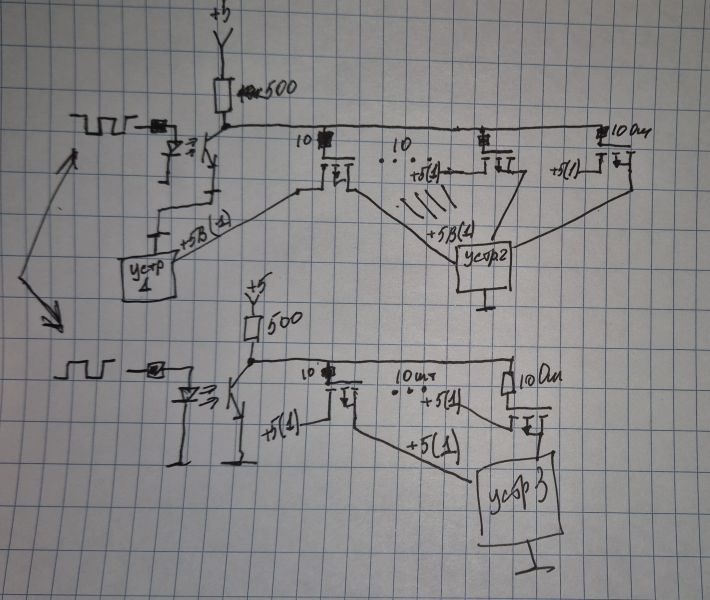 +5
500
10
10
10 Ом
+5(1)
+5(1)
+5В(1)
+5В(1)
устр
1
устр2
+5
500
10
10шт
10 Ом
+5(1)
+5(1)
+5(1)
устр 3